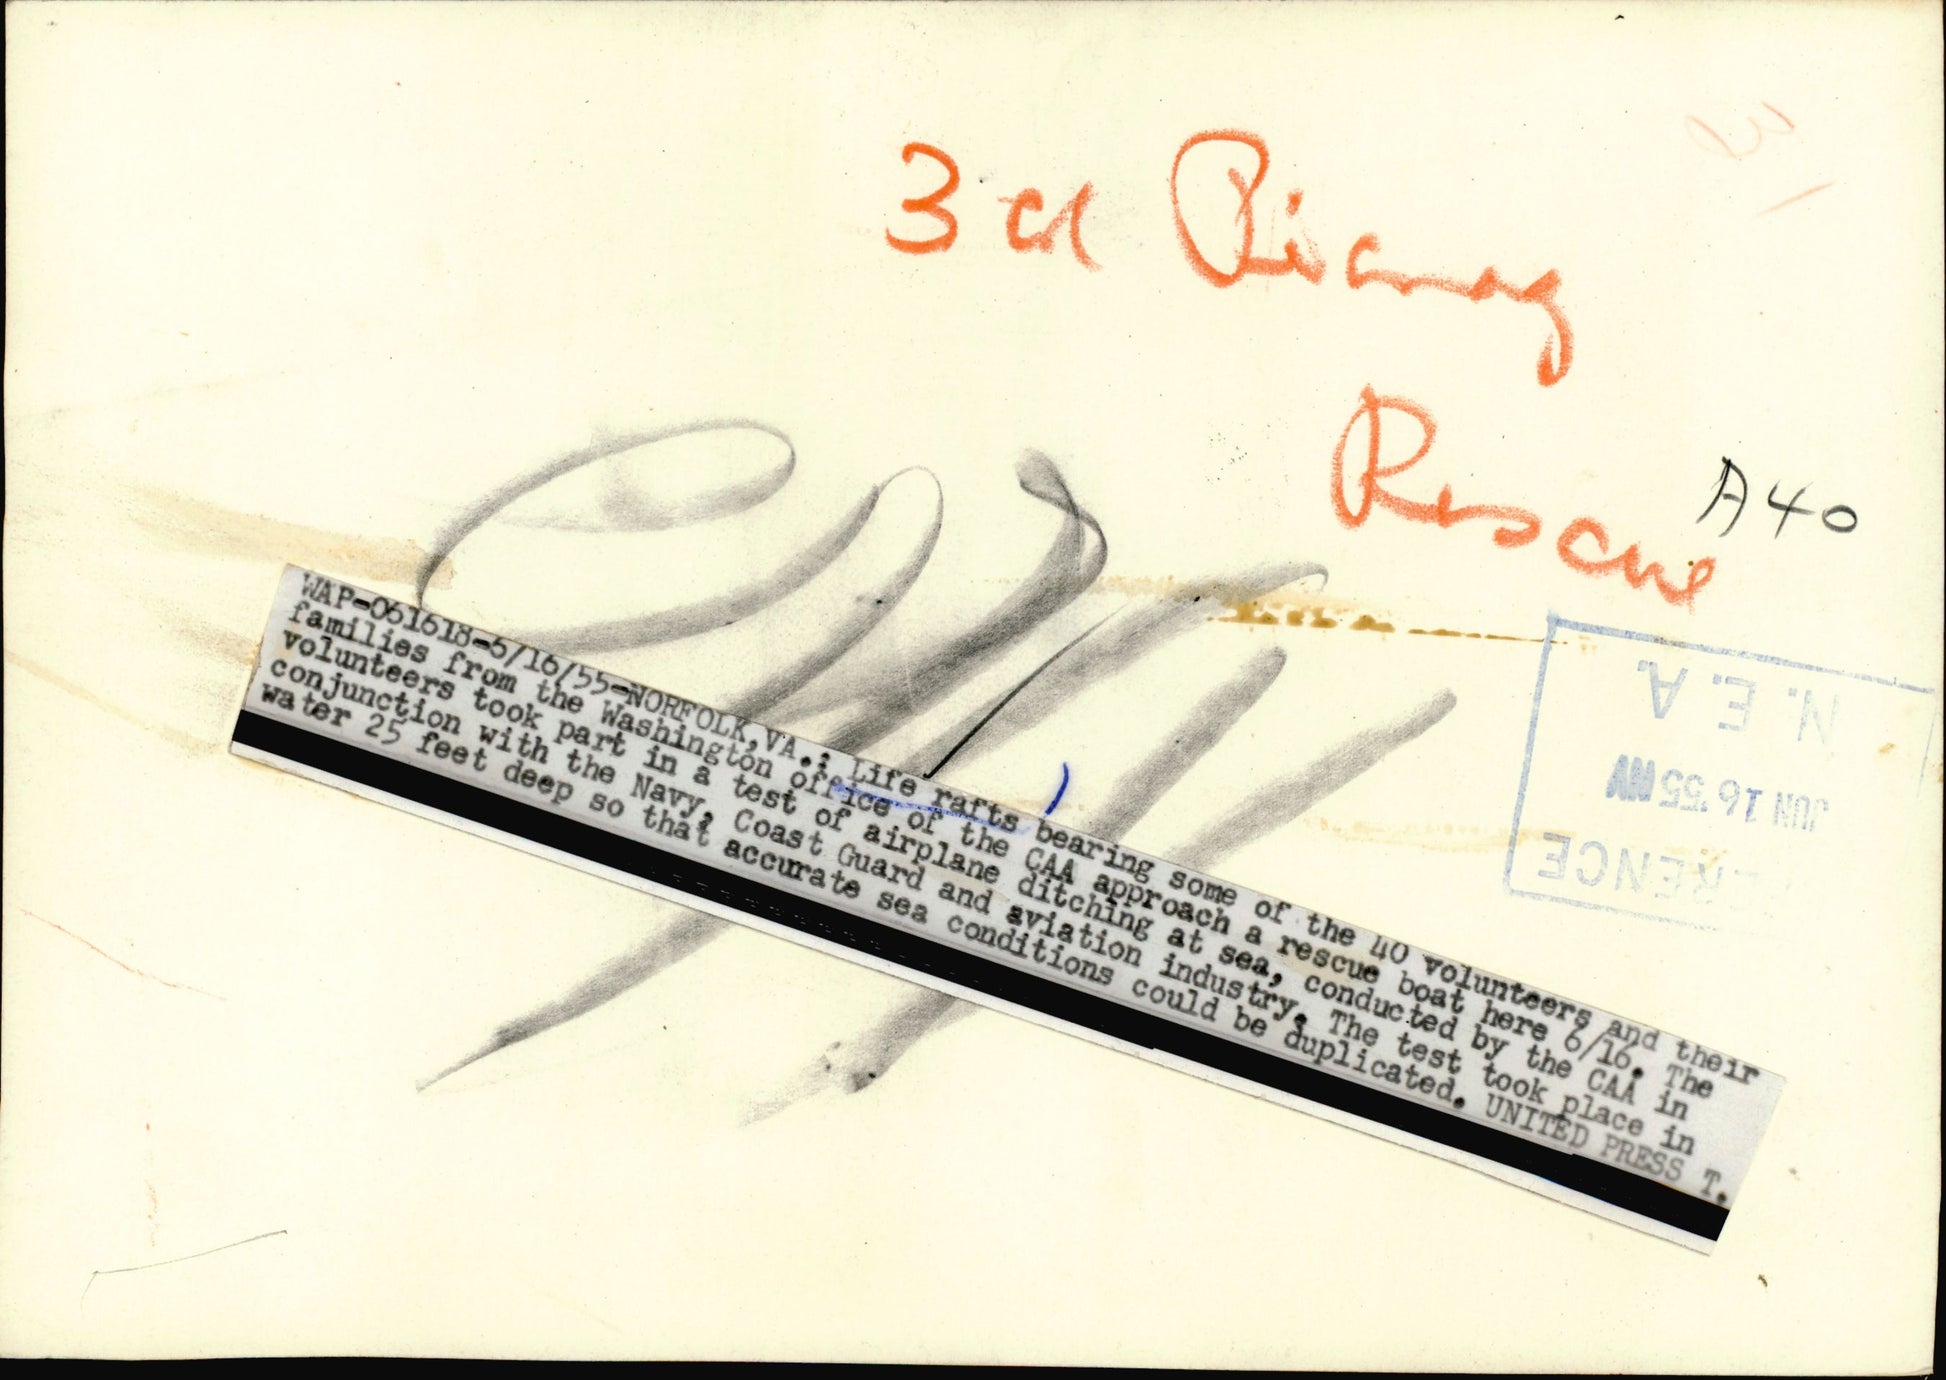 3 cl
Rescue
A40
WAP-061618-6/16/55-NORFOLK,VA.: Life rafts bearing some of the 40 volunteers and their
families from the Washington office of the CAA approach a rescue boat here 6/16. The
volunteers took part in a test of airplane ditching at sea, conducted by the CAA in
conjunction with the Navy, Coast Guard and aviation industry. The test took place in
water 25 feet deep so that accurate sea conditions could be duplicated. UNITED PRESS T.
ERENCE
JUN 16 '55
N. E. A.